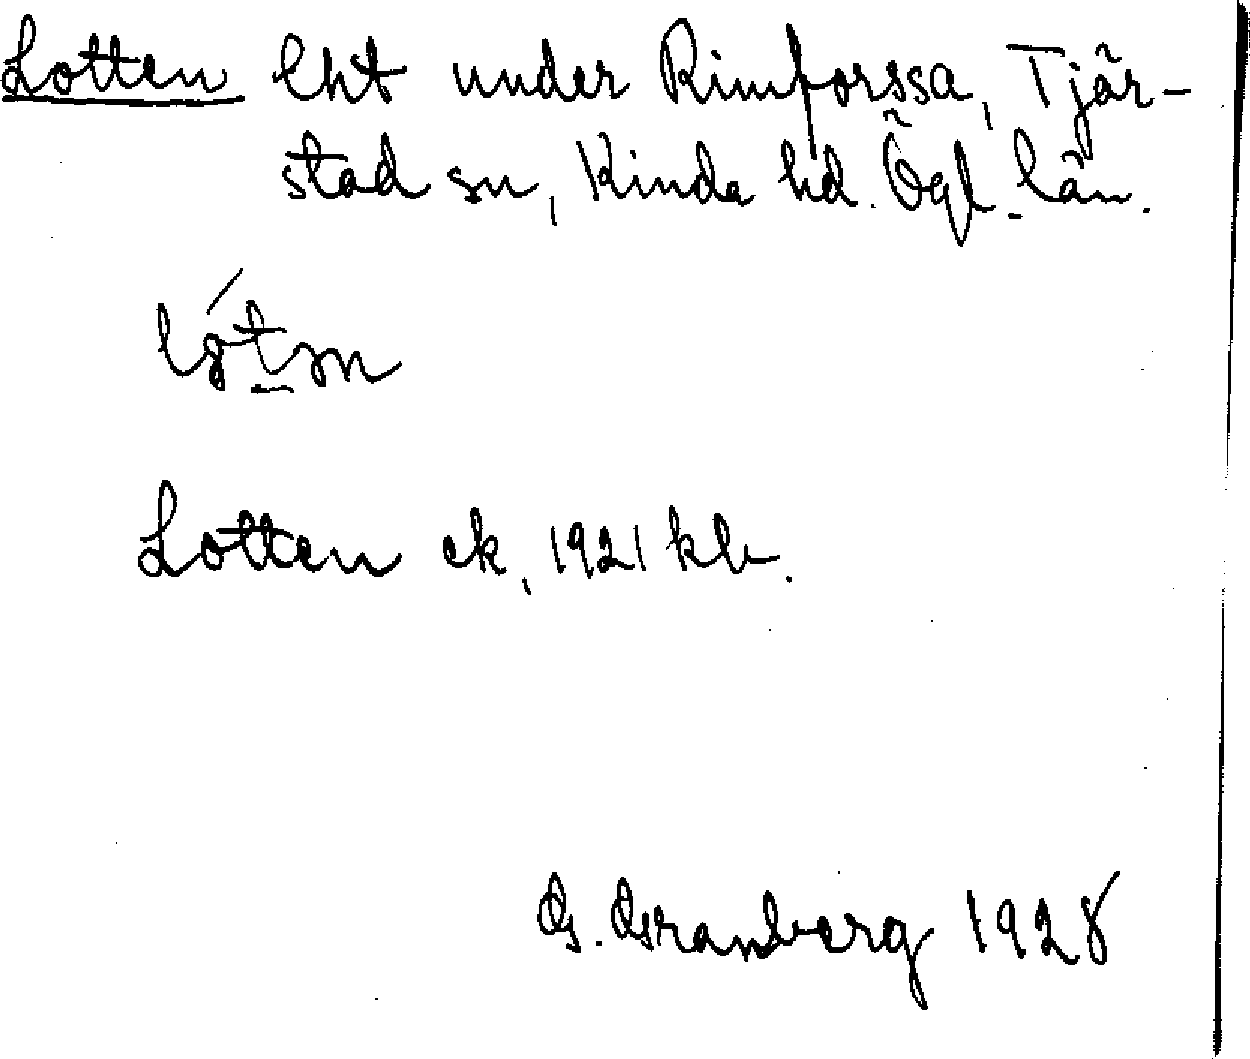 Lotten lht under Rimforssa, Tjär-
stad sn, Kinda hd. Ögl. län.
Lotten ek, 1921 kb.
G. Granberg 1928